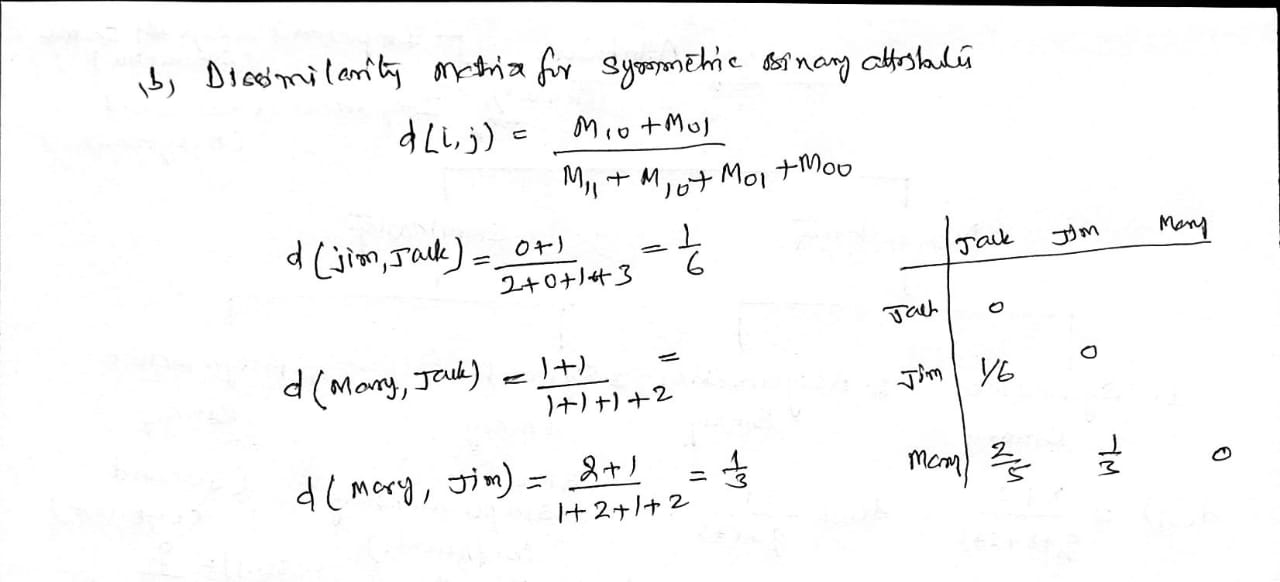 b) Dissimilarity matrix for symmetric binary attributes
d(i,j) = M10 + M01 / M11 + M10 + M01 + M00
d(jim, Jack) = 0+1 / 2+0+1+3 = 1/6
d(Mary, Jack) = 1+1 / 1+1+1+2 =
d(Mary, Jim) = 2+1 / 1+2+1+2 = 1/3
Jack Jim Mary
Jack 0
Jim 1/6 0
Mary 2/5 1/3 0